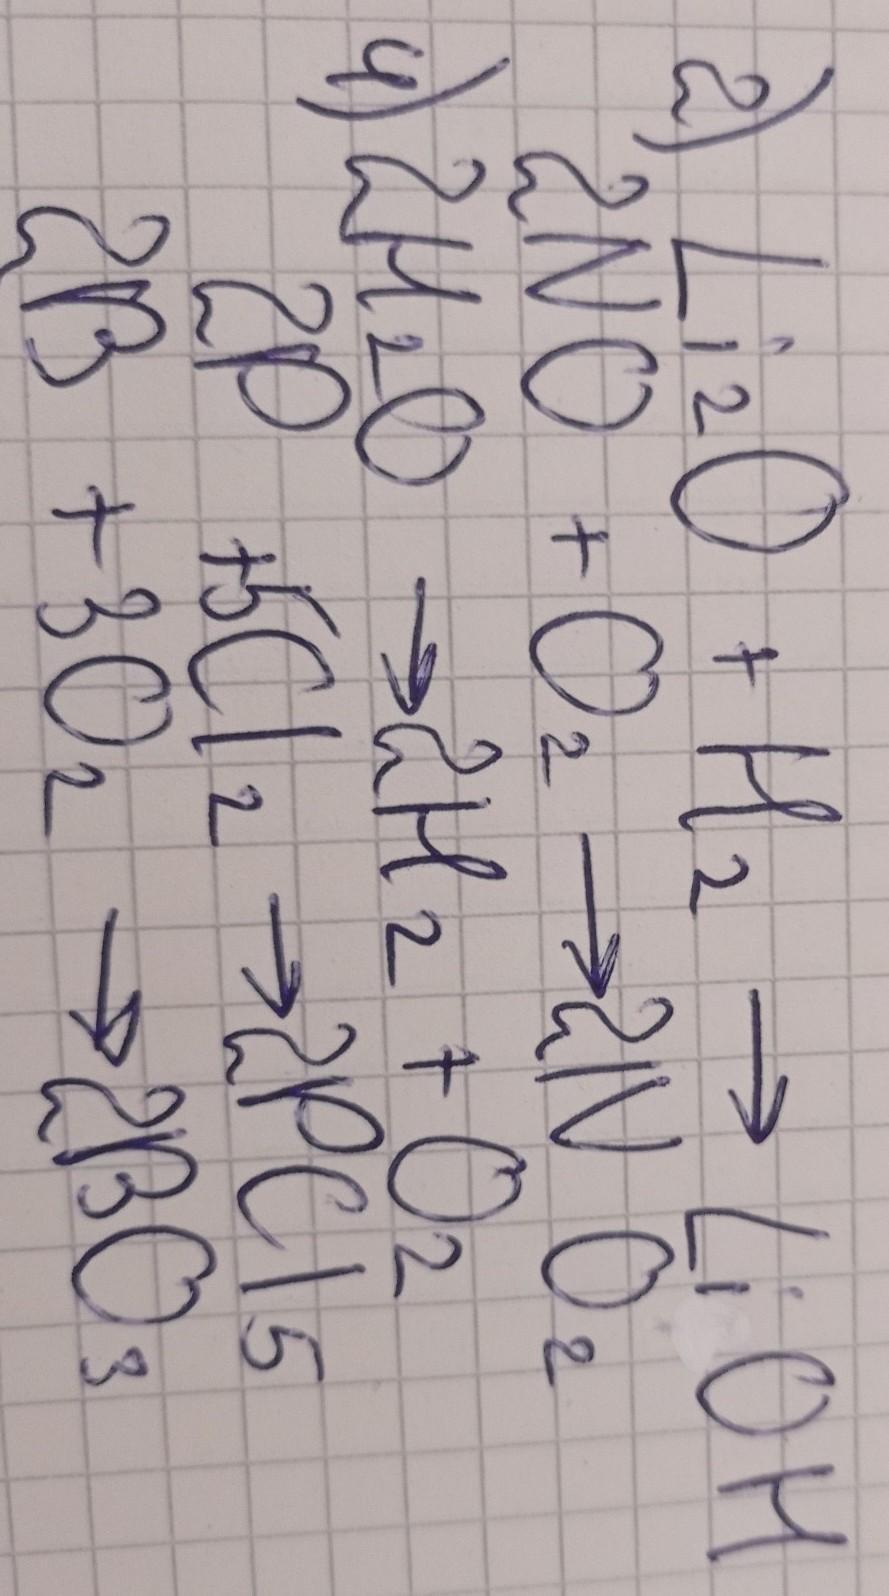 2) Li₂O + H₂ → LiOH
2NO + O₂ → 2NO₂
4) 2H₂O → 2H₂ + O₂
2P + 5Cl₂ → 2PCl₅
2B + 3O₂ → 2BO₃